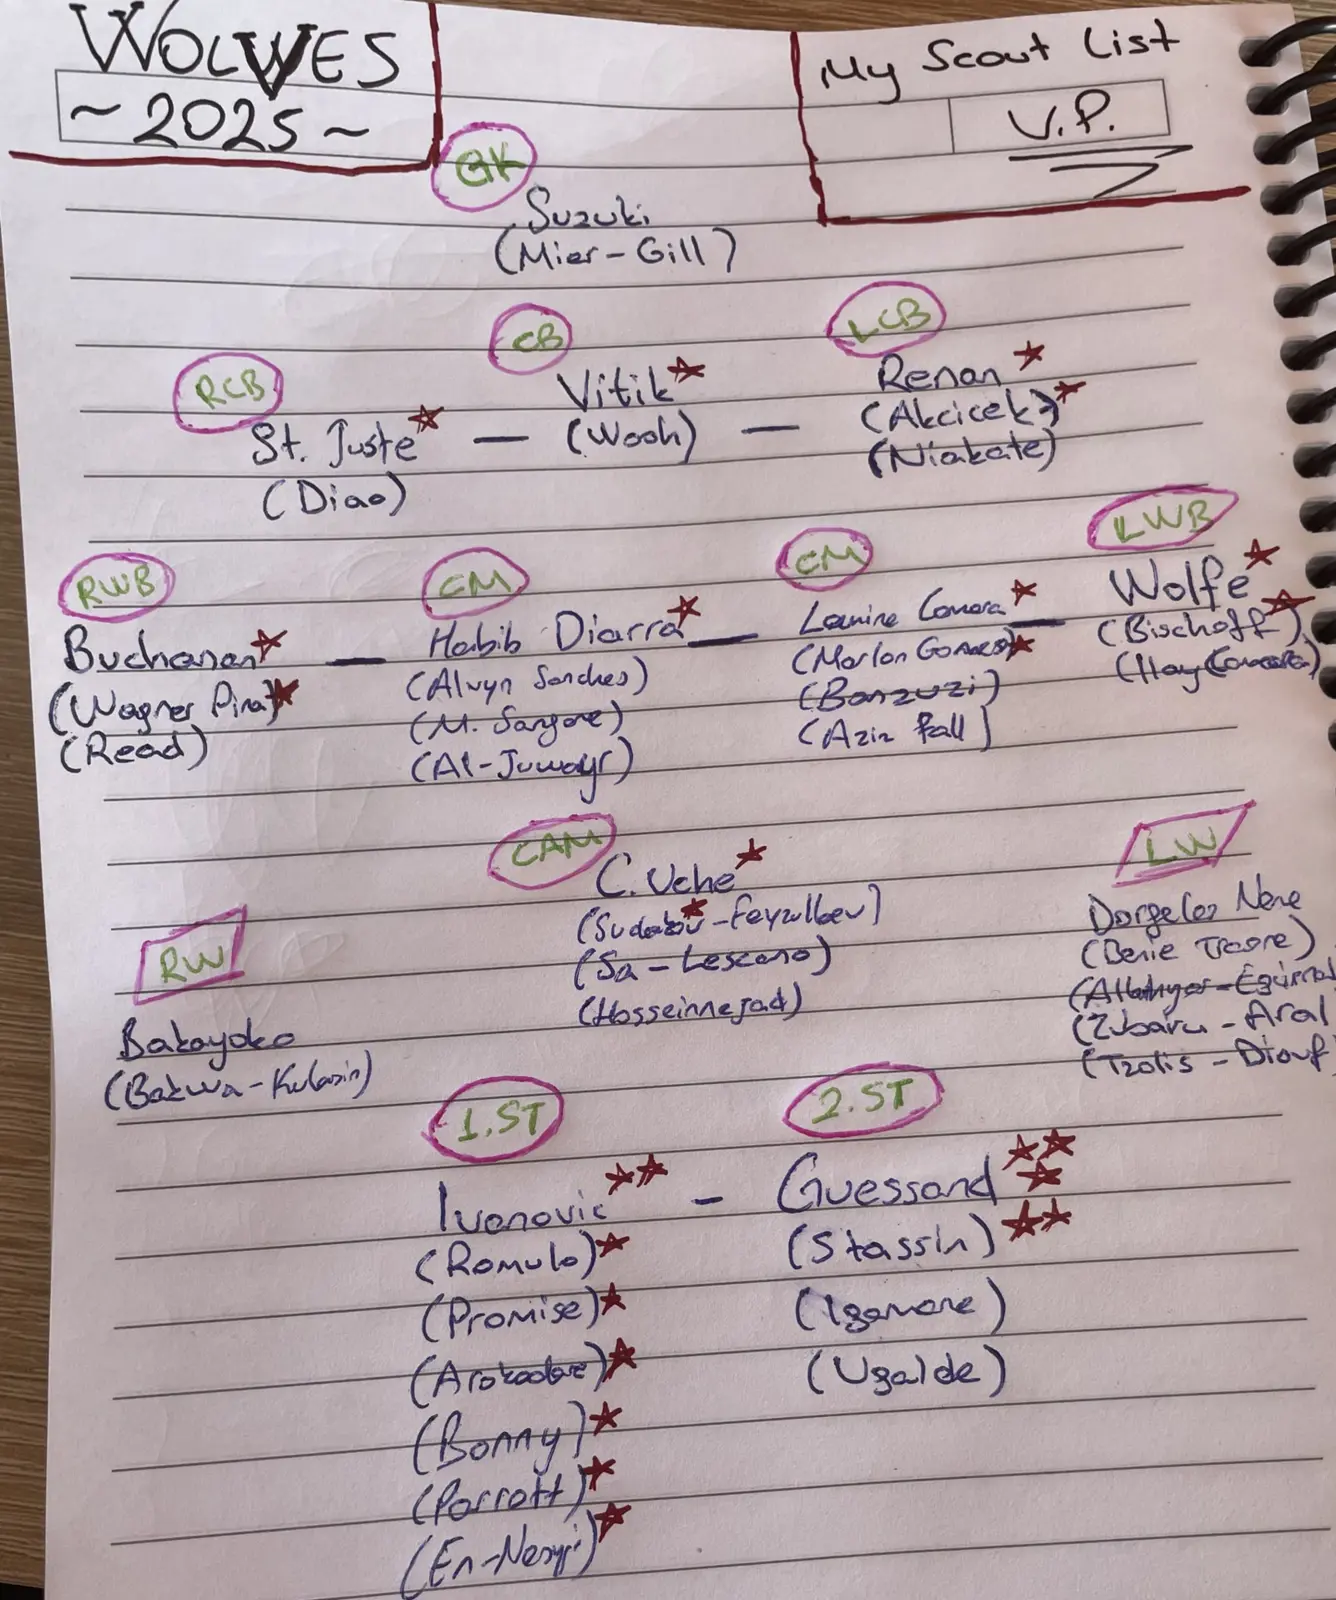 WOLVES
~ 2025 ~
My Scout List
V.P.
GK
Suzuki
(Mier - Gill)
RCB
St. Juste
(Diao)
CB
Vitik
(Wooh)
LCB
Renan
(Akcicek)
(Niakate)
RWB
Buchanan
(Wagner Pina)
(Read)
CM
Habib Diarra
(Alvyn Sanches)
(M. Sangare)
(Al-Juwayr)
CM
Lamine Camara
(Marlon Gomes)
(Banzuzi)
(Aziz Fall)
LWB
Wolfe
(Bischoff)
(Hay Camara)
CAM
C. Uche
(Sudakov - Feyzullaev)
(Sa - Lescano)
(Hosseinnejad)
RW
Bakayoko
(Bakwa - )
LW
Dorgeles Nene
(Benie Traore)
(Zubairu - Aral
(Tzolis - Diouf)
1.ST
Ivanovic
(Romulo)
(Promise)
(Arokodare)
(Bonny)
(Parrott)
(En-Nesyri)
2.ST
Guessand
(Stassin)
(Igamane)
(Ugalde)